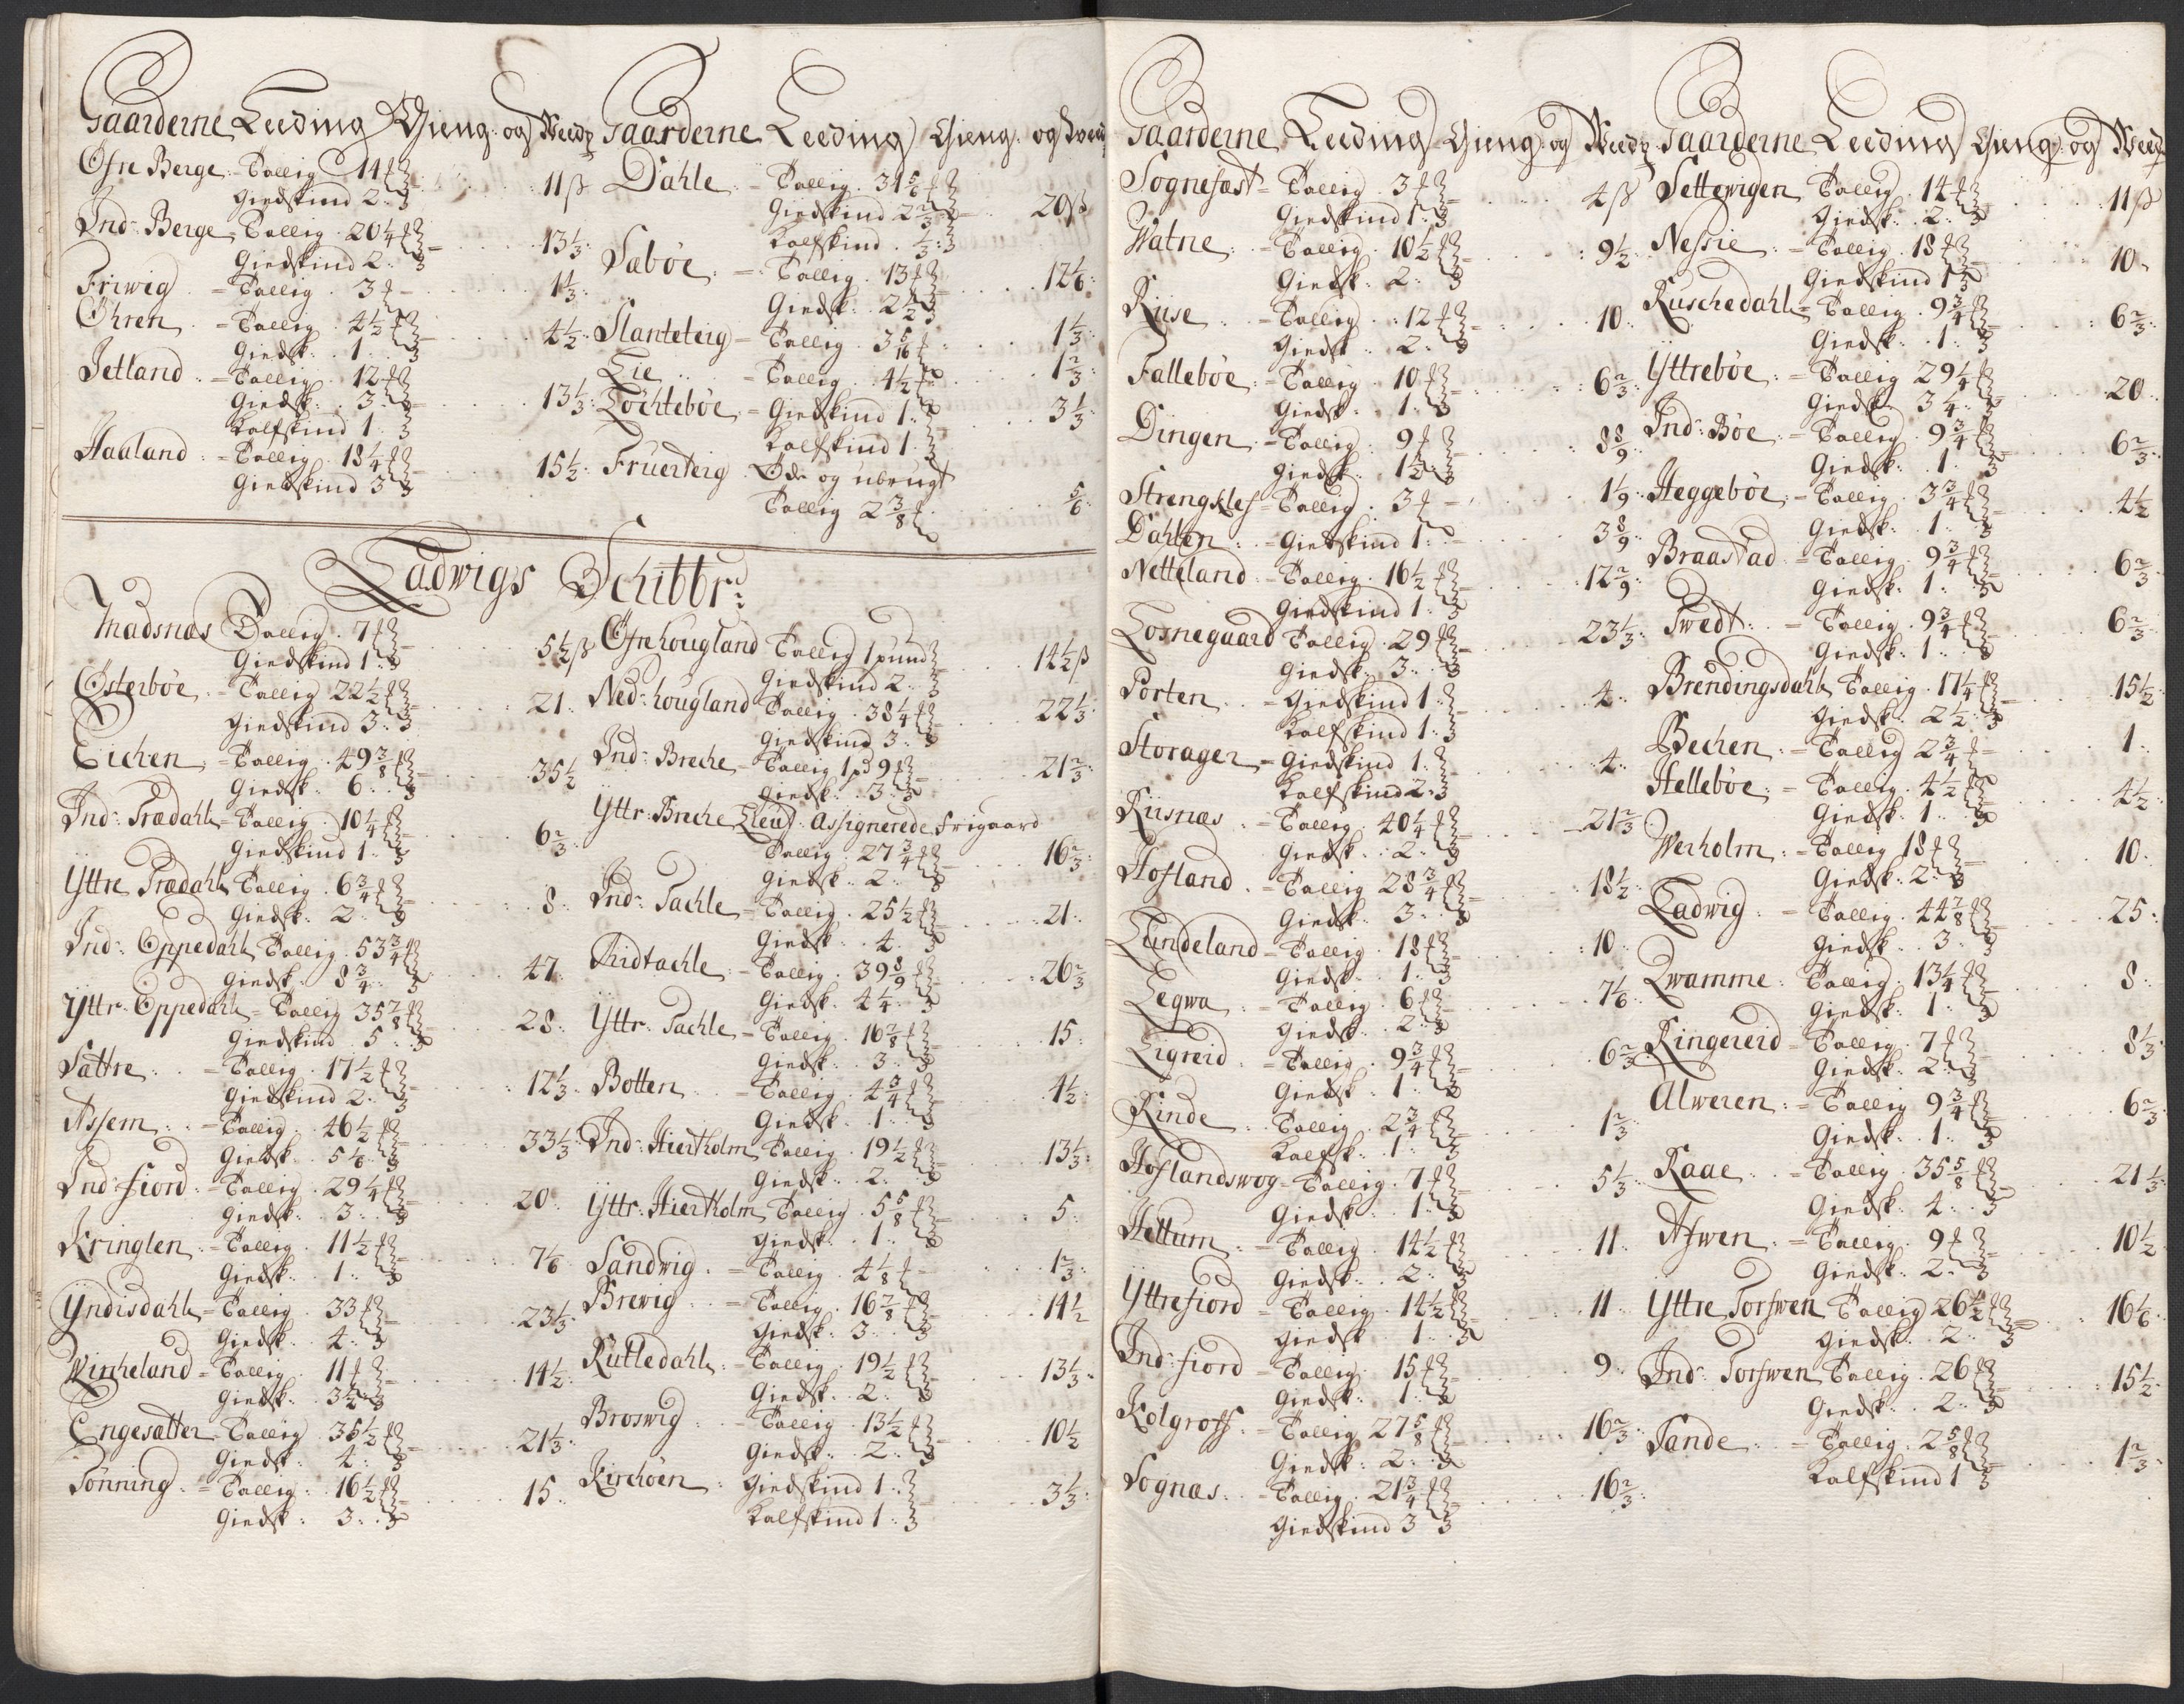 Gaarderne Leeding Gieng: og Weedp
Öfre Berge = Tallig 14 ℔
Giedskind 2: 11 ß
Ind: Berge = Tallig 20 1/4 ℔
Giedskind 2: 13 1/3:
Friwig = Tallig 3 ℔ 1 1/3:
Öhren = Tallig 4 1/2 ℔
Giedsk: 1: 4 1/2:
Jetland = Tallig 12 ℔
Giedsk: 3:
Kalfskind 1: 13 1/3:
Haaland = Tallig 18 1/4 ℔
Giedskind 3 15 1/2:
Gaarderne Leeding Gieng: og Weed
Dahle = Tallig 34 5/6 ℔
Giedskind 2 2/3
Kalfskind 1/3: 20 ß
Saböe = Tallig 13 ℔
Giedsk: 2 1/2 12 1/6:
Slanteteig = Tallig 3 5/16 ℔ 1 1/3:
Lie = Tallig 4 1/2 ℔ 1 2/3:
Lochteböe = Giedskind 1:
Kalfskind 1: 3 1/3:
Fruerteig Öde og ubrugt
Tallig 2 3/8 ℔ 5/6
Ladwigs Schibbr:
Madsnæs Tallig 7 ℔
Giedskind 1: 5 1/2 ß
Österböe = Tallig 22 1/2 ℔
Giedskind 3: 21:
Eichen = Tallig 49 3/8 ℔
Giedsk: 6: 35 1/2
Ind: Trædahl = Tallig 10 1/4 ℔
Giedskind 1: 6 2/3:
Yttre Trædahl Tallig 6 3/4 ℔
Giedsk: 2: 8:
Ind: Oppedahl Tallig 53 3/4 ℔
Giedsk: 8 3/4: 47:
Yttr: Oppedahl = Tallig 35 7/8 ℔
Giedskind 5: 28:
Sattre = Tallig 17 1/2 ℔
Giedskind 2: 12 1/3:
Assem = Tallig 46 1/2 ℔
Giedsk: 5 1/6: 33 1/3:
Ind: fiord = Tallig 29 1/4 ℔
Giedsk: 3: 20:
Kringlen = Tallig 11 1/2 ℔
Giedsk: 1: 7 1/6
Yndisdahl = Tallig 33 ℔
Giedsk: 4: 23 1/3:
Wircheland = Tallig 11 ℔
Giedsk: 3 1/2: 14 1/2:
Engesætter Tallig 35 1/2 ℔
Giedsk: 4: 21 1/3:
Tönning = Tallig 16 1/2 ℔
Giedsk: 3: 15:
Öfre hougland Tallig 1 pund
Giedskind 2: 14 1/2 ß
Ned: hougland Tallig 38 1/4 ℔
Giedskind 3: 22 1/3:
Ind: Breche = Tallig 1 p 9 ℔
Giedsk: 3: 21 2/3:
Yttr: Breche Assignerede frigaard
Tallig 27 3/4 ℔
Giedsk: 2: 16 2/3:
Ind: Tachle = Tallig 25 1/2 ℔
Giedsk: 4 21:
Midtachle = Tallig 39 8/9 ℔
Giedsk: 4 1/4: 26 2/3:
Yttr: Tachle = Tallig 16 7/8 ℔
Giedsk: 3: 15:
Botten = Tallig 4 3/4 ℔
Giedsk: 1: 4 1/2:
Ind: Hiertholm Tallig 19 1/2 ℔
Giedsk: 2: 13 1/3:
Yttr: Hiertholm Tallig 5 5/8 ℔
Giedsk: 1: 5:
Sandwig = Tallig 4 1/8 ℔ 1 2/3:
Brewig = Tallig 16 7/8 ℔
Giedsk: 3: 14 1/2
Rutledahl = Tallig 19 1/2 ℔
Giedsk: 2: 13 1/3:
Broswig = Tallig 13 1/2 ℔
Giedsk: 2: 10 1/2
Kirchöen Giedskind 1:
Kalfskind 1: 3 1/3:
Gaarderne Leeding Gieng: og Weedp
Sognefæst = Tallig 3 ℔
Giedskind 1: 4 ß
Watne = Tallig 10 1/2 ℔
Giedsk: 2: 9 1/2
Riise = Tallig 12 ℔
Giedsk: 2: 10:
Falleböe = Tallig 10 ℔
Giedsk: 1: 6 2/3:
Dingen = Tallig 9 ℔
Giedsk: 1 1/2: 8 8/9
Strengklef = Tallig 3 ℔ 1 1/9:
Dahlen = Giedskind 1: 3 8/9
Netteland = Tallig 16 1/2 ℔
Giedskind 1: 12 2/9:
Losnegaard Tallig 29 ℔
Giedsk: 3: 23 1/3:
Porten = Giedskind 1:
Kalfskind 1: 4:
Storager = Giedskind 1:
Kalfskind 2: 4:
Riisnæs = Tallig 40 1/4 ℔
Giedsk: 2: 21 2/3
Hofland = Tallig 28 3/4 ℔
Giedsk: 3: 18 1/2:
Lundeland = Tallig 18 ℔
Giedsk: 1: 10:
Legwa = Tallig 6 ℔
Giedsk: 2: 7 1/6:
Ligreid = Tallig 9 3/4 ℔
Giedsk: 1: 6 2/3
Rinde = Tallig 2 3/4 ℔
Kalfsk: 1: 1 2/3:
Hoflandswog = Tallig 7 ℔
Giedsk: 1: 5 1/3:
Hellum = Tallig 14 1/2 ℔
Giedsk: 2: 11:
Yttrefiord = Tallig 14 1/2 ℔
Giedsk: 1: 11
Ind: fiord = Tallig 15 ℔
Giedsk: 1: 9:
Kolgroff = Tallig 27 5/8 ℔
Giedsk: 2: 16 2/3:
Sognæs = Tallig 21 3/4 ℔
Giedskind 3 16 2/3:
Gaarderne Leeding Gieng: og Weed
Settewigen Tallig 14 ℔
Giedsk: 2: 11 ß
Nessie = Tallig 18 ℔
Giedskind 1 10
Ruschedahl = Tallig 9 3/4 ℔
Giedsk: 1: 6 2/3:
Yttreböe = Tallig 29 1/4 ℔
Giedsk: 3 1/4: 20:
Ind: Böe = Tallig 9 3/4 ℔
Giedsk: 1: 6 2/3:
Heggeböe = Tallig 3 3/4 ℔
Giedsk: 1: 4 1/2
Braastad = Tallig 9 3/4 ℔
Giedsk: 1: 6 2/3
Twedt = Tallig 9 3/4 ℔
Giedsk: 1: 6 2/3:
Brendingsdahl Tallig 17 1/4 ℔
Giedsk: 2 1/2: 15 1/2
Bechen = Tallig 2 3/4 ℔ 1:
Helleböe = Tallig 4 1/2 ℔
Giedsk: 1: 4 1/2:
Werholm = Tallig 18 ℔
Giedsk: 2: 10:
Ladwig = Tallig 44 7/8 ℔
Giedsk: 3: 25:
Qwamme = Tallig 13 1/4 ℔
Giedsk: 1: 8:
Ringereid = Tallig 7 ℔
Giedsk: 2: 8 1/3:
Alweren = Tallig 9 3/4 ℔
Giedsk: 1: 6 2/3:
Raae = Tallig 35 5/8 ℔
Giedsk: 4: 21 1/3:
Afwen = Tallig 9 ℔
Giedsk: 2: 10 1/2
Yttre Torfwen Tallig 26 1/2 ℔
Giedsk: 2: 16 1/6:
Ind: Torfwen Tallig 26 ℔
Giedsk: 2: 15 1/2:
Sande = Tallig 2 5/8 ℔
Kalfskind 1 1 2/3: